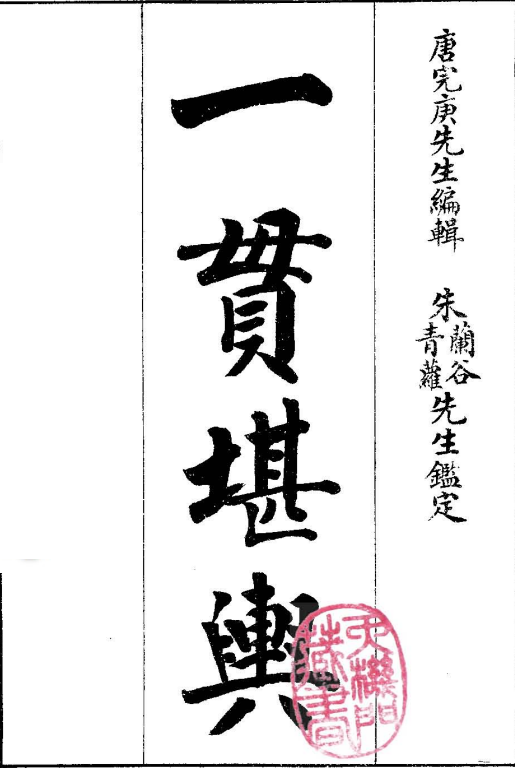 唐宪庚先生編輯　朱蘭谷青蘿先生鑑定
一貫堪輿
天機門藏書